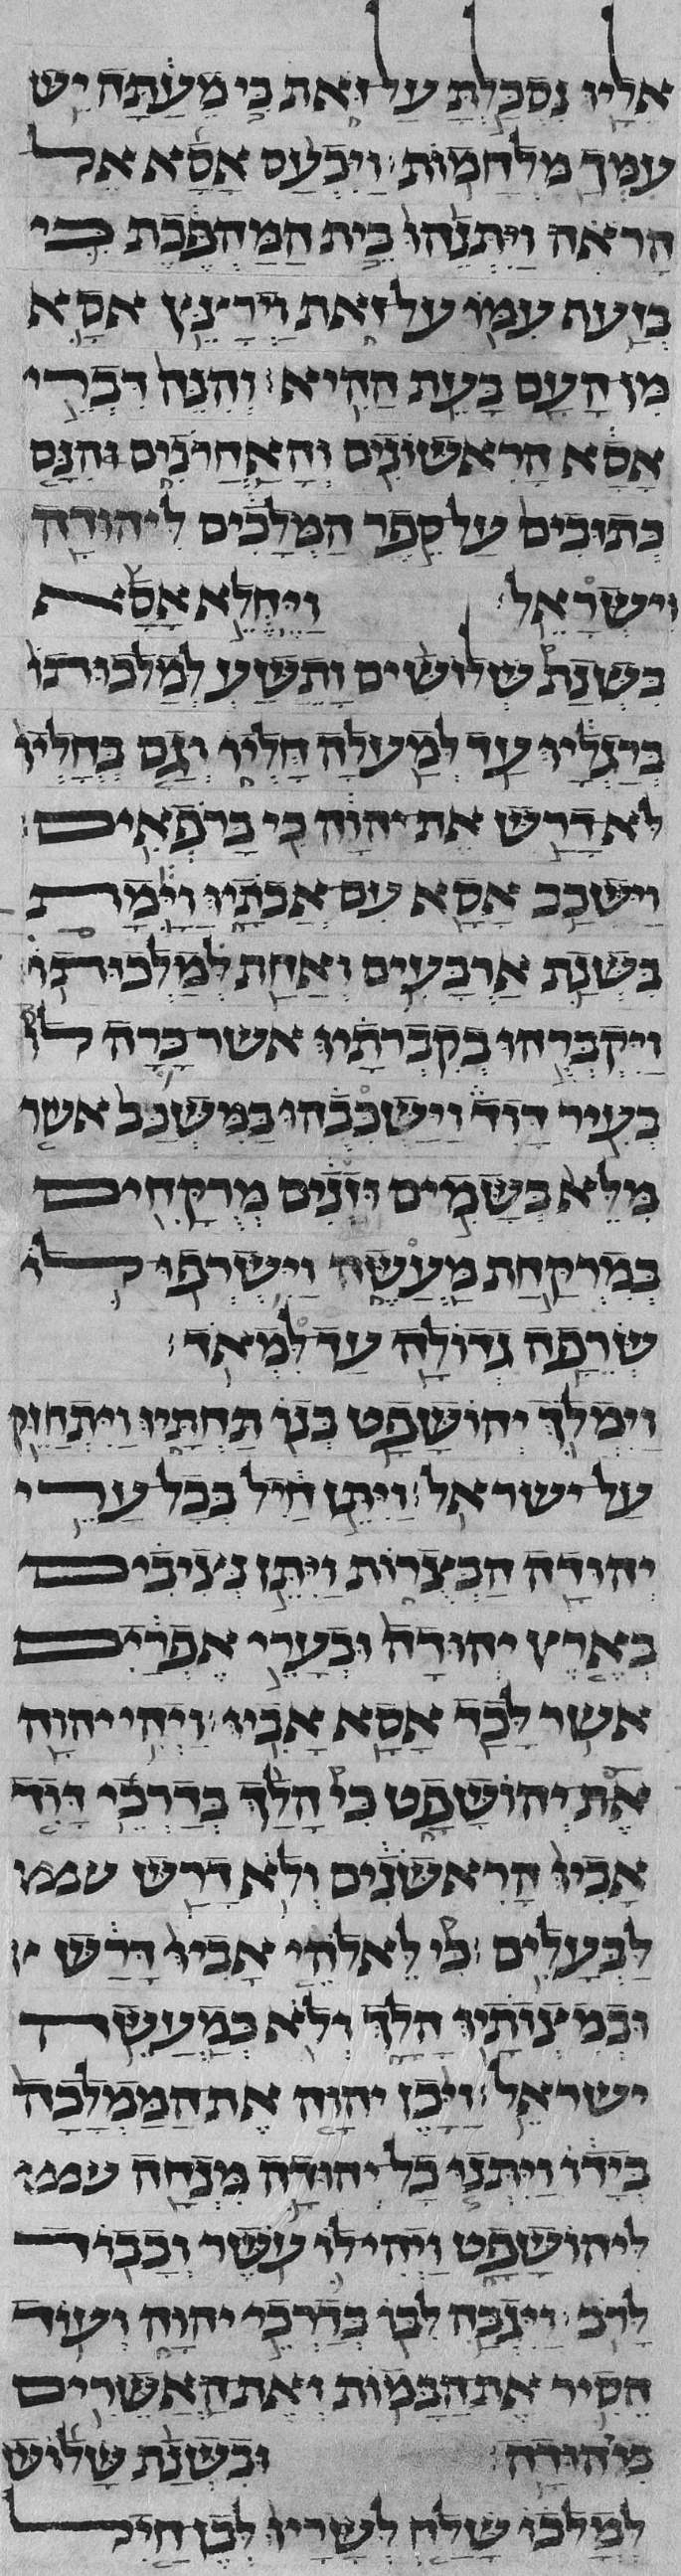 אליו נסכלת על זאת כי מעתה יש
עמך מלחמות׃ ויכעס אסא אל
הראה ויתנהו בית המהפכת כי
בזעף עמו על זאת וירצץ אסא
מן העם בעת ההיא׃ והנה דברי
אסא הראשונים והאחרונים הנם
כתובים על ספר המלכים ליהודה
וישראל׃ ויחלא אסא
בשנת שלושים ותשע למלכותו
ברגליו עד למעלה חליו וגם בחליו
לא דרש את יהוה כי ברפאים׃
וישכב אסא עם אבתיו וימת
בשנת ארבעים ואחת למלכותו׃
ויקברהו בקברתיו אשר כרה לו
בעיר דוד וישכבהו במשכב אשר
מלא בשמים וזנים מרקחים
במרקחת מעשה וישרפו לו
שרפה גדולה עד למאד׃
וימלך יהושפט בנו תחתיו ויתחזק
על ישראל׃ ויתן חיל בכל ערי
יהודה הבצרות ויתן נציבים
בארץ יהודה ובערי אפרים
אשר לכד אסא אביו׃ ויהי יהוה
את יהושפט כי הלך בדרכי דוד
אביו הראשנים ולא דרש
לבעלים׃ כי לאלהי אביו דרש
ובמצותיו הלך ולא כמעשה
ישראל׃ ויכן יהוה את הממלכה
בידו ויתנו כל יהודה מנחה
ליהושפט ויהי לו עשר וכבוד
לרב׃ ויגבה לבו בדרכי יהוה ועוד
הסיר את הבמות ואת האשרים
מיהודה׃ ובשנת שלוש
למלכו שלח לשריו לבן חיל